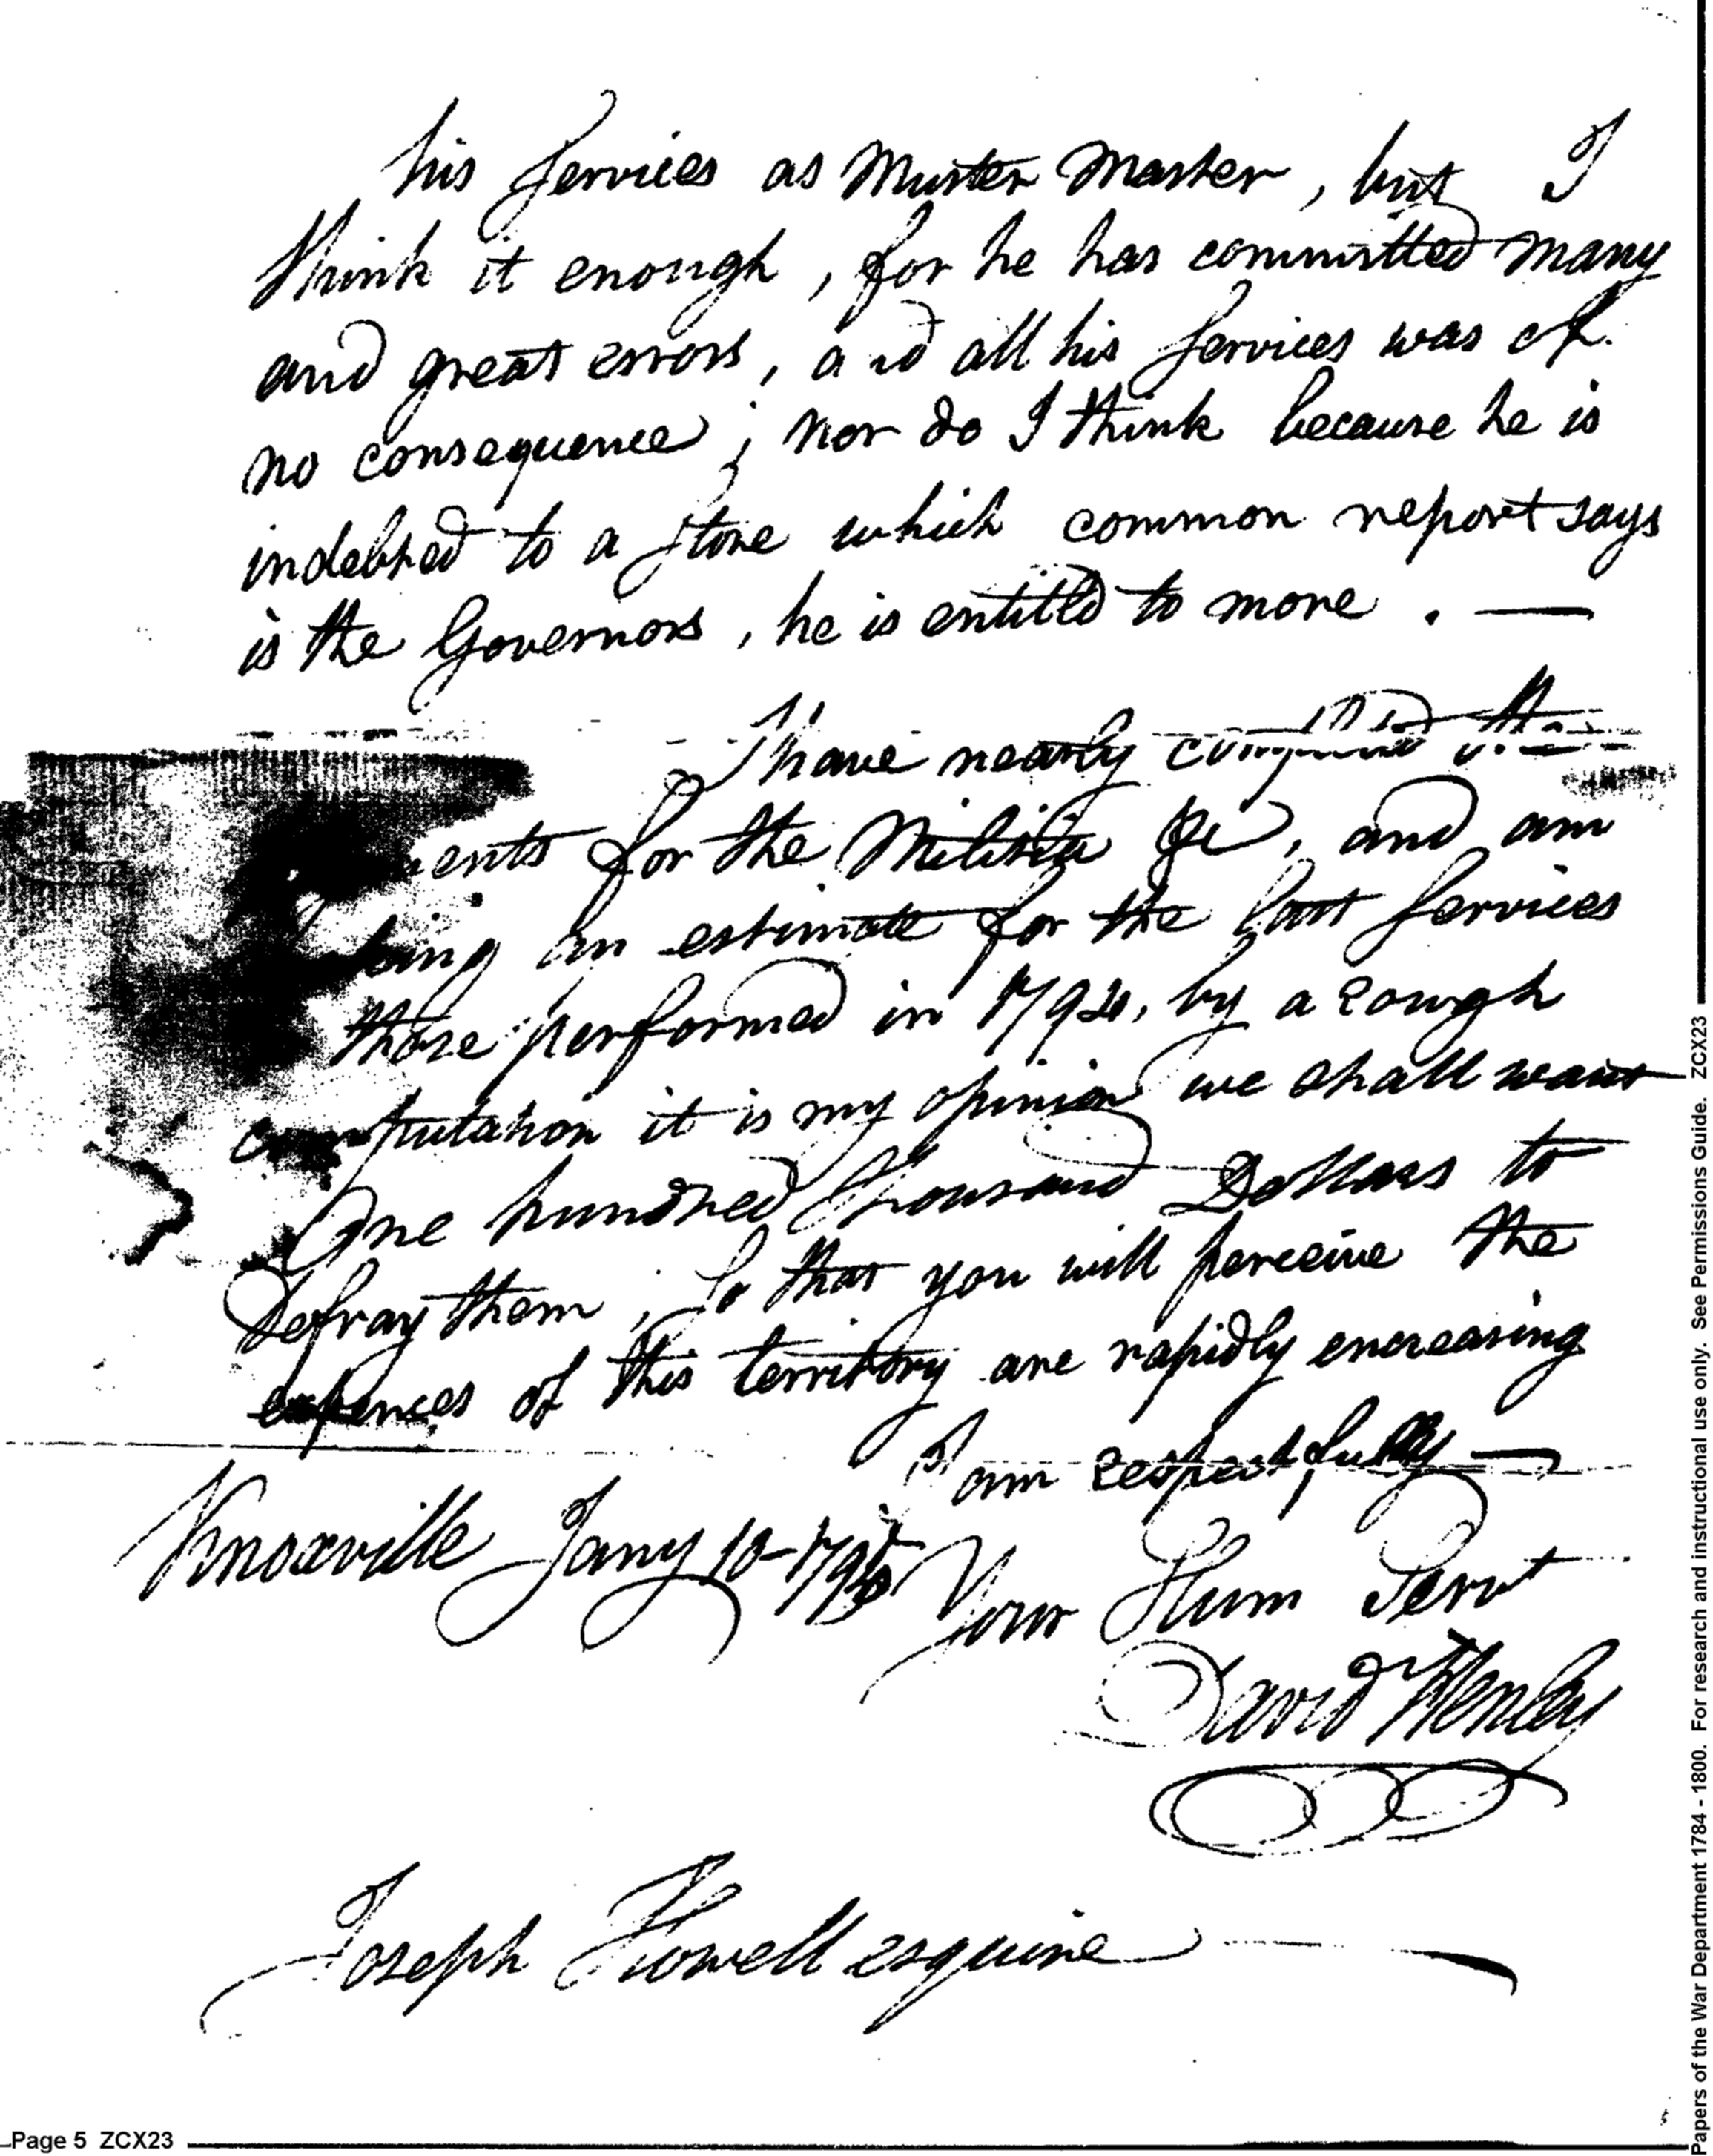 his Services as Muster Master, but I
think it enough, for he has committed many
and great errors, and all his Services was of
no consequence; nor do I think because he is
indebted to a Store which common report says
is the Governors, he is entitled to more. —
I have nearly completed the
for the Militia &c, and am
an estimate for the last Services
those performed in by a rough
computation it is my opinion we shall want
One hundred thousand Dollars to
Defray them, So that you will perceive the
expences of this territory are rapidly encreasing
I am respectfully —
Knoxville Jany 10-
Your Hum Servt
David Henley
Joseph Howell esquire
Page 5 ZCX23
Papers of the War Department 1784 - 1800. For research and instructional use only. See Permissions Guide. ZCX23